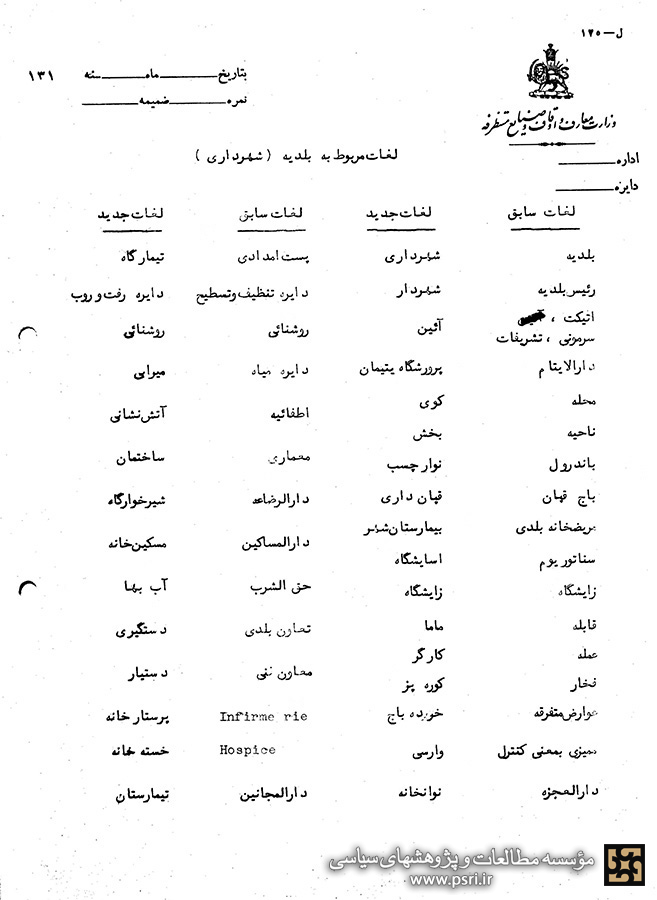 ل — ۱۲۵
وزارت معارف و اوقاف و صنایع مستظرفه
بتاریخ ماه سنه ۱۳۱
نمره ضمیمه
اداره
دایره
لغات مربوط به بلدیه (شهرداری)
لغات سابق لغات جدید لغات سابق لغات جدید
بلدیه شهرداری پست امدادی تیمارگاه
رئیس بلدیه شهردار دایره تنظیف و تسطیح دایره رفت و روب
اتیکت ،
سرمونی ، تشریفات آئین روشنائی روشنائی
دارالایتام پرورشگاه یتیمان دایره میاه میرابی
محله کوی اطفائیه آتش نشانی
ناحیه بخش معماری ساختمان
باندرول نوار چسب
باج قپان قپان داری دارالرضاعه شیرخوارگاه
مریضخانه بلدی بیمارستان شهر دارالمساکین مسکین خانه
سناتوریوم اسایشگاه
زایشگاه زایشگاه حق الشرب آب بها
قابله ماما تعاون بلدی دستگیری
عمله کارگر
فخار کوره پز معاون فنی دستیار
عوارض متفرقه خورده باج Infirme rie پرستار خانه
ممیزی بمعنی کنترل وارسی Hospice خسته خانه
دارالعجزه نوانخانه دارالمجانین تیمارستان
مؤسسه مطالعات و پژوهشهای سیاسی
www.psri.ir